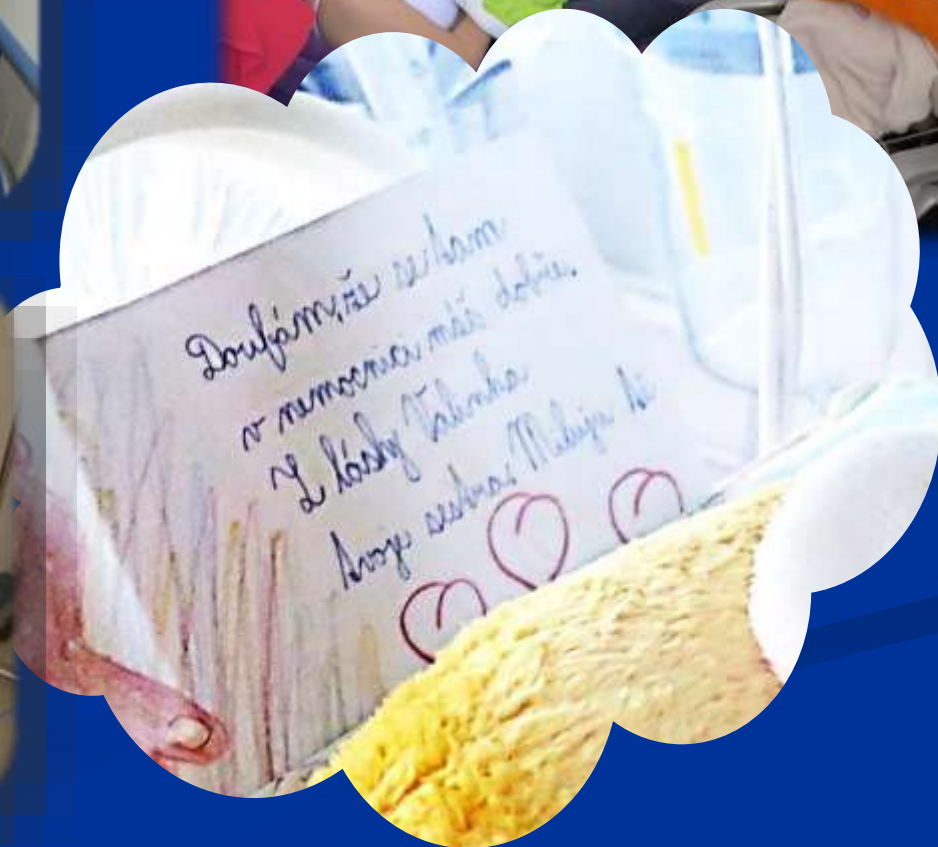 Doufám, že se tam
v nemocnici máš dobře.
Z lásky Valinka
tvoje sestra. Miluju tě